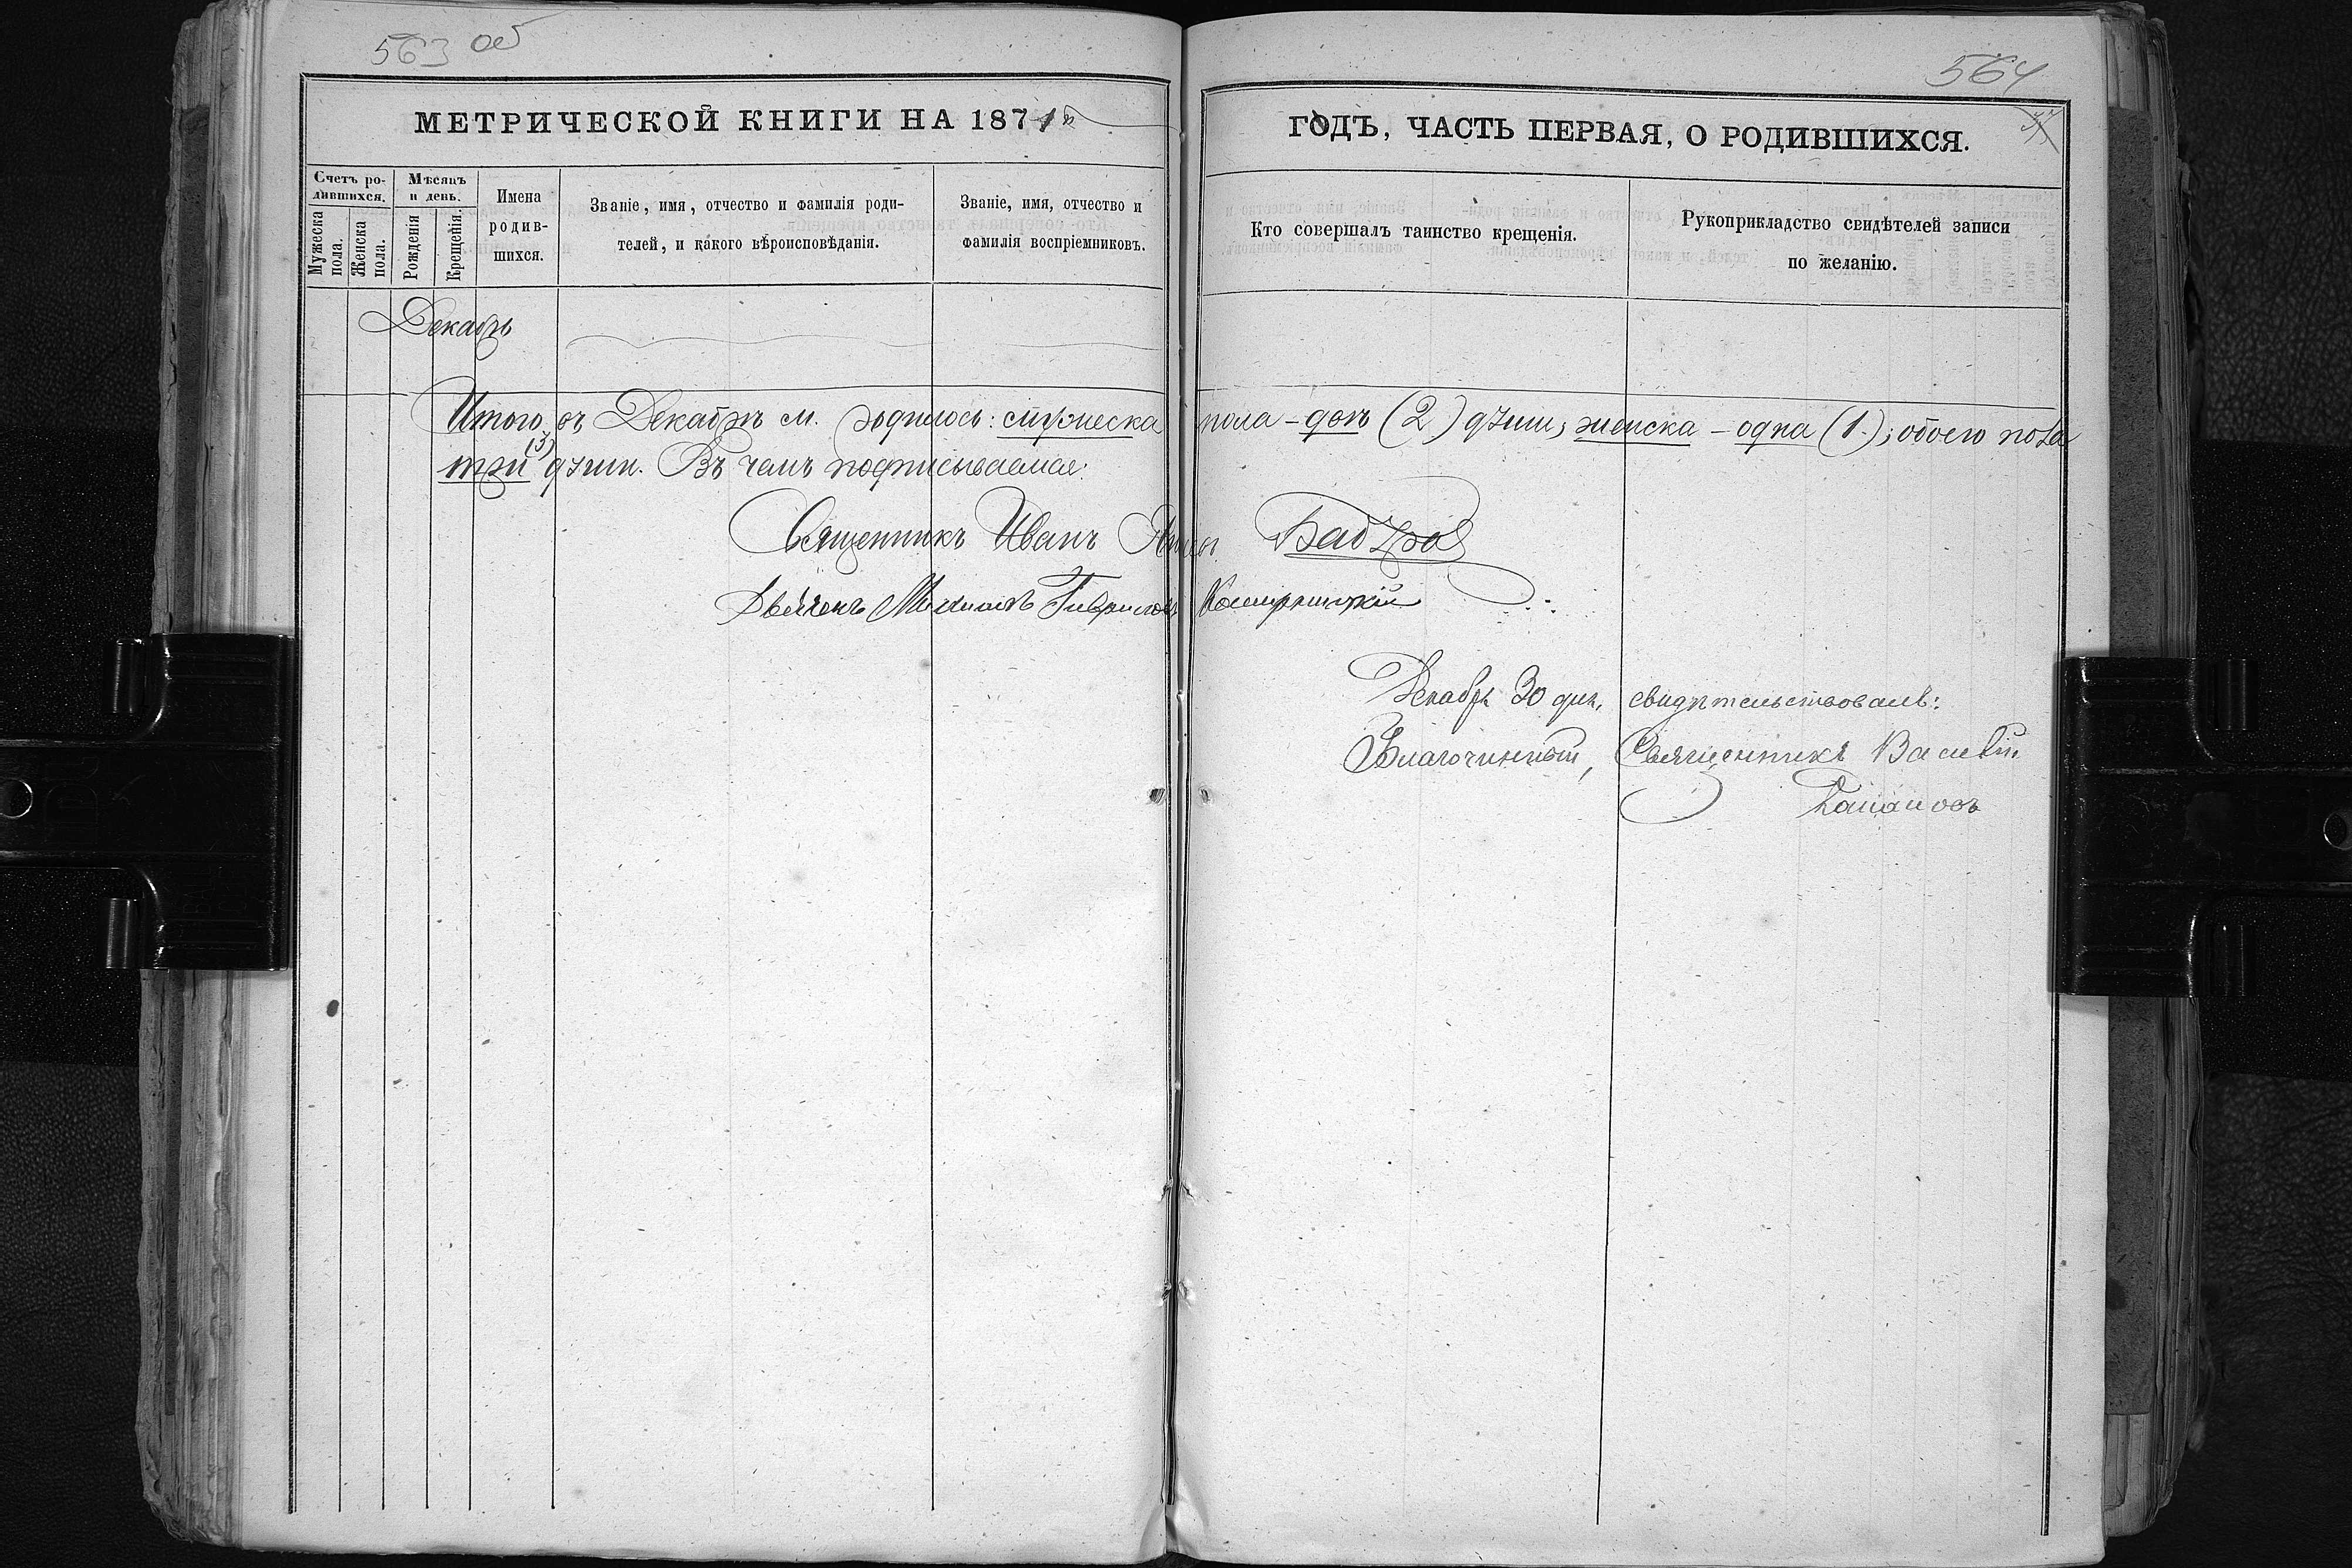 563 об
564
МЕТРИЧЕСКОЙ КНИГИ НА 1871й ГОДЪ, ЧАСТЬ ПЕРВАЯ, О РОДИВШИХСЯ.
Счетъ ро-
дившихся.
Мужеска пола.
Женска пола.
Мѣсяцъ
и день.
Рожденія
Крещенія.
Имена
родив-
шихся.
Званіе, имя, отчество и фамилія роди-
телей, и какого вѣроисповѣданія.
Званіе, имя, отчество и
фамилія воспріемниковъ.
Кто совершалъ таинство крещенія.
Рукоприкладство свидѣтелей записи
по желанію.
Декабрь
Итого въ Декабрѣ м. родилось: мужеска пола - двѣ (2) души, женска - одна (1.); обоего пола
три (3) души. Въ чемъ подписываемся:
Священникъ Иванъ
Михаилъ Гавриловъ
Декабря 30 дня, свидѣтельствовалъ:
Благочинный, Священникъ Василій